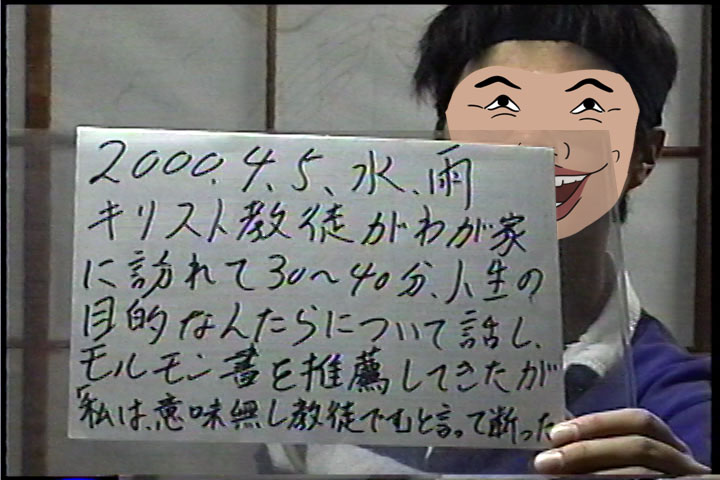 2000.4.5、水、雨
キリスト教徒がわが家
に訪れて30〜40分、人生の
目的なんたらについて話し、
モルモン書を推薦してきたが
「私は、意味無し教徒です」と言って断った